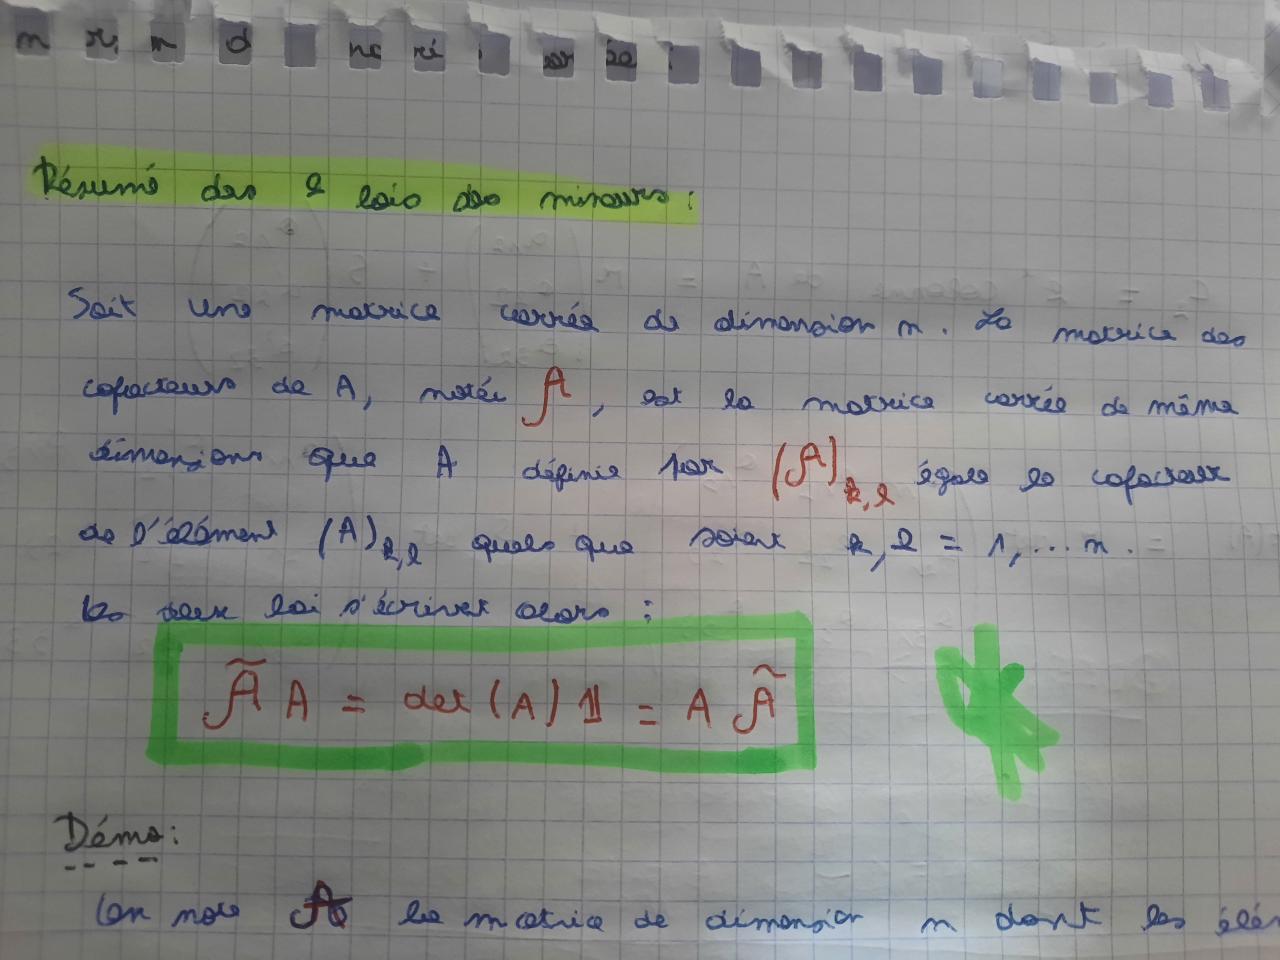 Résumé des 2 lois des mineurs :
Soit une matrice carrée de dimension n. La matrice des
cofacteurs de A, notée 𝒜, est la matrice carrée de même
dimensions que A définie par (𝒜)k,l égale le cofacteur
de l'élément (A)k,l quels que soient k, l = 1, ... n.
Les deux loi s'écrivet alors :
𝒜̃ A = det (A) 𝟙 = A 𝒜̃
Démo :
On note 𝒜 la matrice de dimension n dont les élé